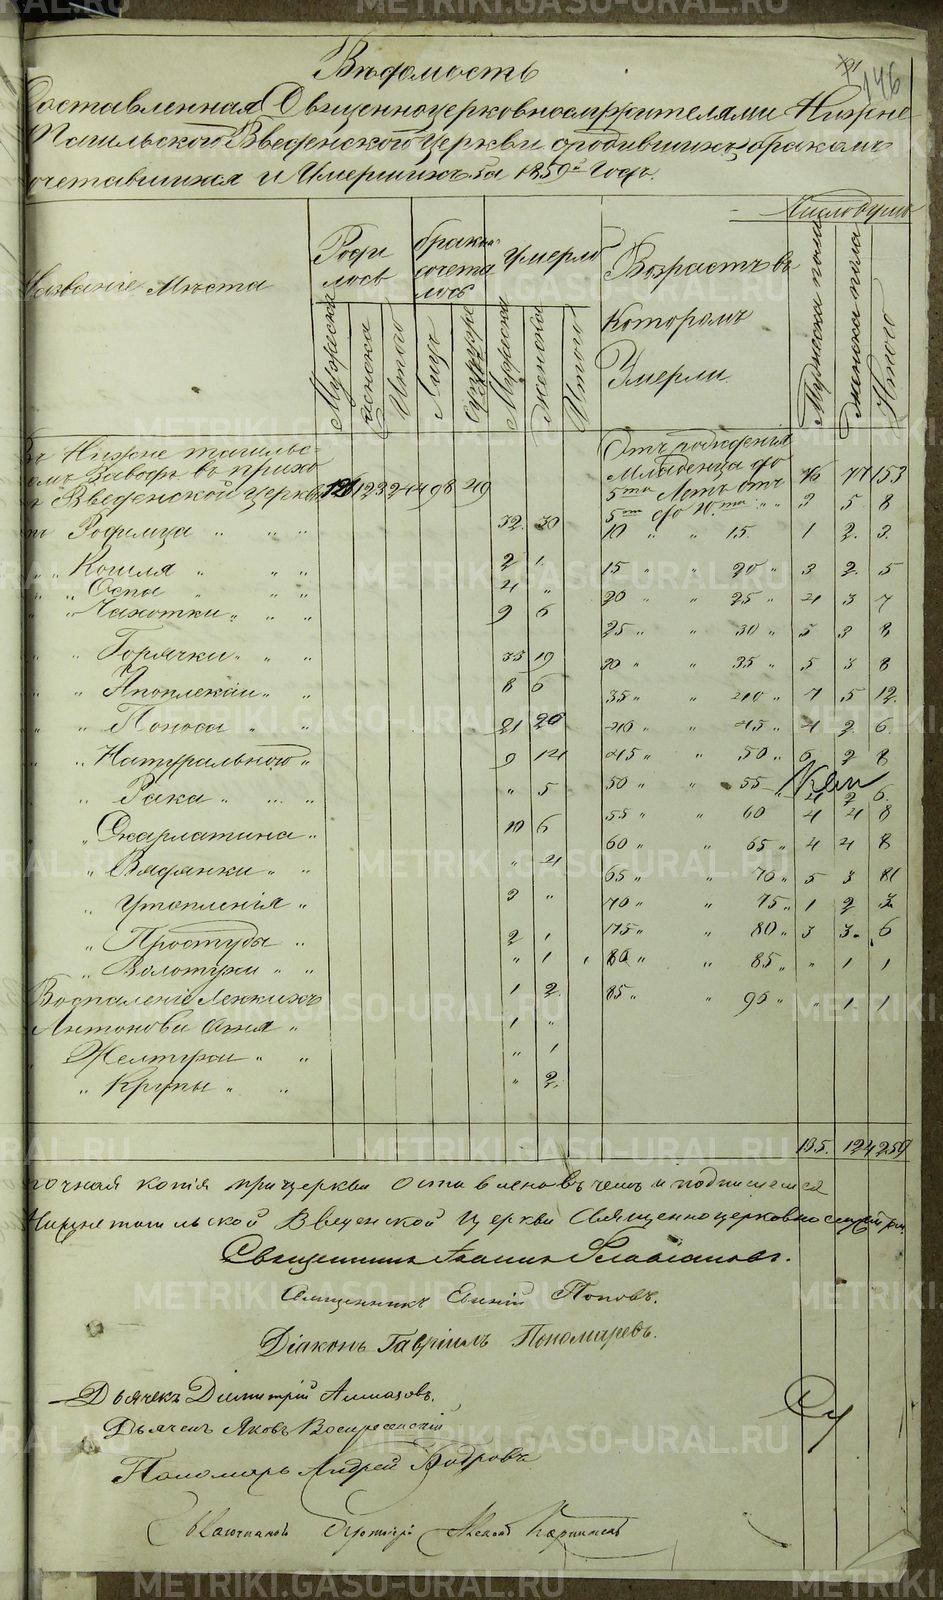 146
Вѣдомость
Составленная Священноцерковнослужителями Нижне
Тагильской Введенской Церкви о родившихся бракомъ
сочетавшихся и Умершихъ за 1859й Годъ.
Число душъ
Названіе Мѣста
Роди
лось
бракомъ
сочета
лось
Умерло
Возрастъ въ
Которомъ
Умерли
Мужеска
женска
Итого
Лицъ
Мужеска
женска
Итого
Мужеска пола
женска пола
Итого
Въ Нижне тагильс-
омъ Заводѣ въ прихо
Введенской церкви 121 123 244 98 49
Отъ рожденія
Младенца до
5ти Лѣтъ отъ 76 77 153
5ти до 10ти 3 5 8
Родимца " " " 32 30
10 " " 15 1 2 3
Кошля " " " 2 1
15 " " 20 " 3 2 5
Оспы " " " 4 "
20 " " 25 " 4 3 7
Чахотки " " " 9 6
25 " " 30 " 5 3 8
Горячки " " " 35 19
30 " " 35 " 5 3 8
Апоплексіи " " 8 6
35 " " 40 " 7 5 12
Поноса " " 21 26
40 " " 45 " 4 2 6
Натуральной " 9 14
45 " " 50 " 6 2 8
Рака " " " " 5
50 " " 55 4 2 6
Скарлатина " 10 6
55 " " 60 4 4 8
Вадянки " " " 4
60 " " 65 " 4 4 8
65 " " 70 " 5 3 8
Утопленія " 3 "
70 " " 75 " 1 2 3
Простуды " 2 1
75 " " 80 " 3 3 6
Золотухи " " " 1
80 " " 85 " " 1 1
Воспаленіе Лехкихъ 1 2
85 " " 90 " " 1 1
Антонова Огня " 1 "
Желтухи " " " 1
" Крупы " " " 2
135 124 259
точная копія при церкви оставлена въ чемъ и подписуемся
Нижнетагильской Введенской Церкви Священноцерковнослужители
Священникъ Іоаннъ Флавіановъ.
Священникъ Евгеній Поповъ.
Діаконъ Гавріилъ Пономаревъ.
Дьячекъ Димитрій Алмазовъ.
Дьячекъ Яковъ Воскресенскій
Пономарь Андрей Бодровъ
METRIKI.GASO-URAL.RU